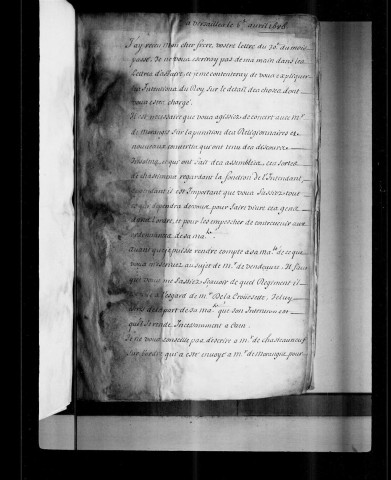 a Versailles le 6e avril 1686
J'ay receu mon cher frere, vostre lettre du 30e du mois
passé. Je ne vous escriray pas de ma main dans les
lettres d'affaire, et je me contenteray de vous expliquer
les Intentions du Roy sur le detail des choses dont
vous estes chargé.
Il est necessaire que vous agissiez de concert avec Mr.
de Morangis sur la punition des Religionnaires et
nouveaux convertis qui ont tenu des discours
Insolens, et qui ont fait des assemblées, ces sortes
de chastimens regardant la fonction de l'Intendant
cependant il est Important que vous fassiez tout
ce qui dependra de vous pour faire vivre ces gens
dans l'ordre, et pour les empescher de contrevenir aux
ordonnances de sa mate.
avant que je puisse rendre compte a sa mate. de ce que
vous m'escrivez au sujet de Mr. de Vendeuvre. Il faut
que vous me fassiez sçavoir de quel Regiment il
a l'esgard de Mr. de la
de la part de sa mate. que son Intention est
qu'il se rende Incessamment a Caen.
Je ne vous conseille pas d'escrire a Mr. de Chasteauneuf
sur l'ordre qui a esté envoyé a Mr. de Morangis pour